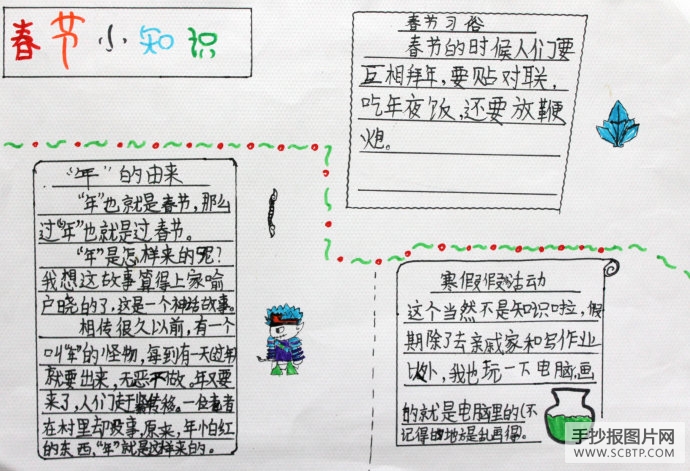 春节小知识
春节习俗
春节的时候人们要
互相拜年,要贴对联,
吃年夜饭,还要放鞭
炮。
“年”的由来
“年”也就是春节,那么
过“年”也就是过春节。
“年”是怎样来的呢?
我想这故事算得上家喻
户晓的了,这是一个神话故事。
相传很久以前,有一个
叫“年”的怪物,每到有一天这
就要出来,无恶不做。年又要
来了,人们赶紧转移。一位老者
在村里却没事,原来,年怕红
的东西,“年”就是这样来的。
寒假假活动
这个当然不是知识啦,假
期除了去亲戚家和写作业
以外,我也玩一下电脑,画
的就是电脑里的(不
记得的地方是乱画得。
手抄报图片网
WWW.SCBTP.COM